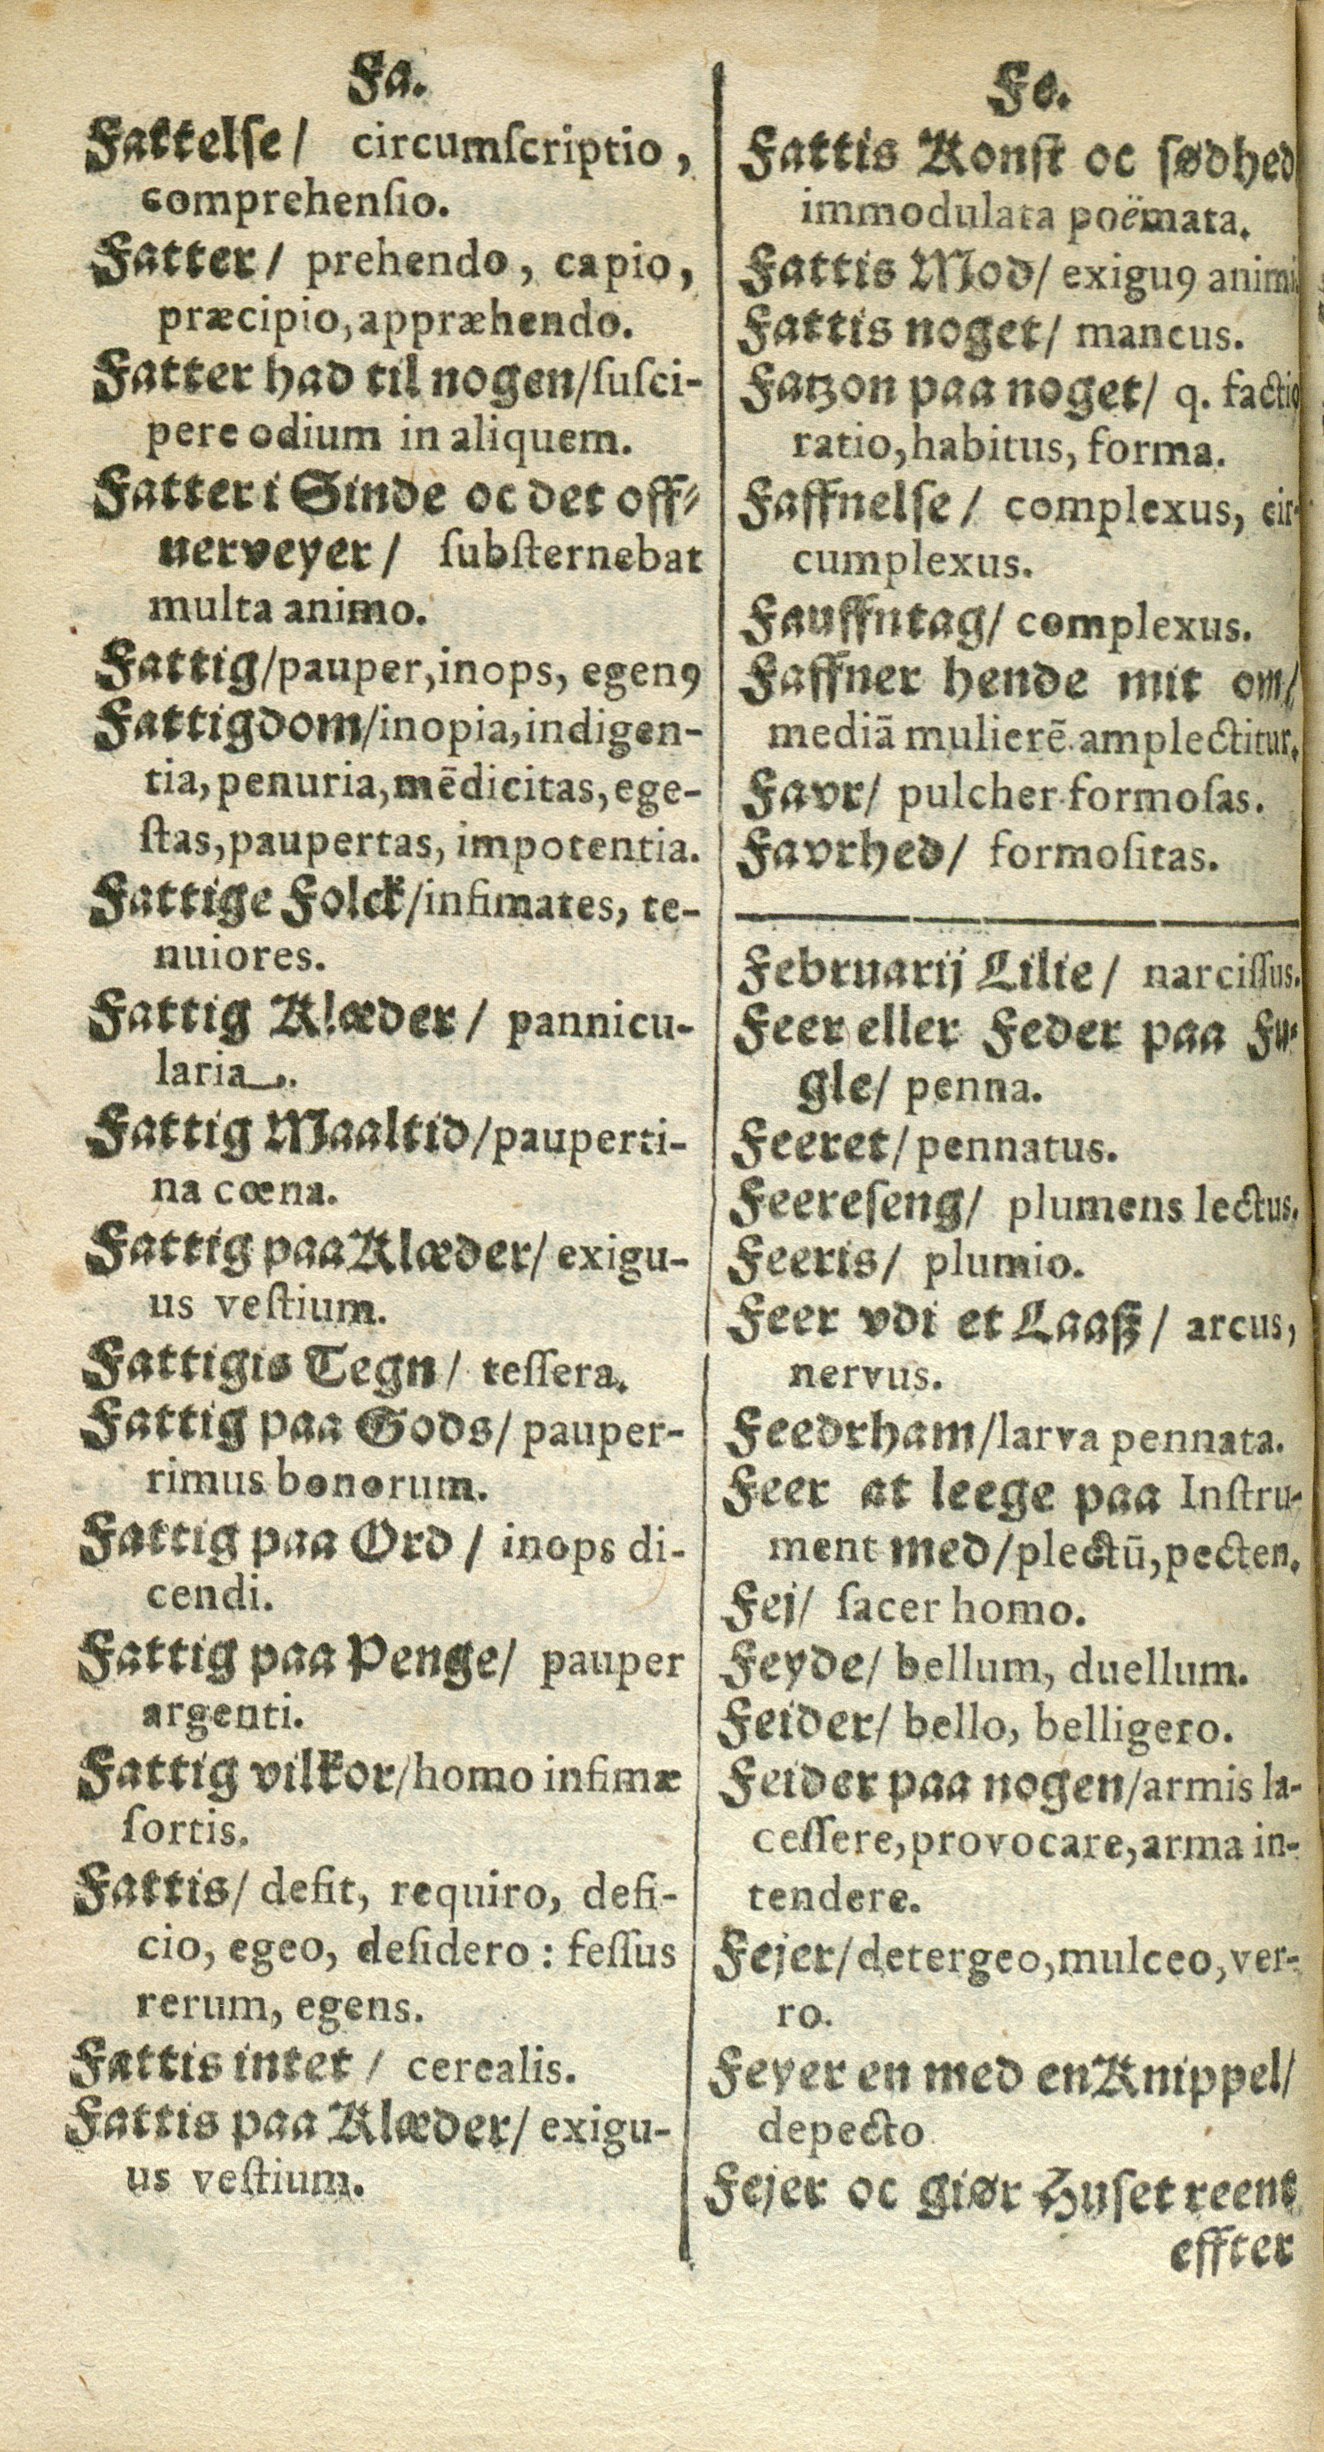 Fa.
Fattelſe/ circumſcriptio,
comprehenſio.
Fatter/ prehendo, capio,
præcipio, appræhendo.
Fatter had til nogen/ ſuſci-
pere odium in aliquem.
Fatter i Sinde oc det off-
nerveyer/ ſubſternebat
multa animo.
Fattig/ pauper, inops, egenꝰ
Fattigdom/ inopia, indigen-
tia, penuria, mēdicitas, ege-
ſtas, paupertas, impotentia.
Fattige Folck/ infimates, te-
nuiores.
Fattig Klæder/ pannicu-
laria.
Fattig Maaltid/ pauperti-
na cœna.
Fattig paa Klæder/ exigu-
us veſtium.
Fattigis Tegn/ teſſera.
Fattig paa Gods/ pauper-
rimus bonorum.
Fattig paa Ord/ inops di-
cendi.
Fattig paa Penge/ pauper
argenti.
Fattig vilkor/ homo infimæ
ſortis.
Fattis/ defit, requiro, defi-
cio, egeo, deſidero: feſſus
rerum, egens.
Fattis intet/ cerealis.
Fattis paa Klæder/ exigu-
us veſtium.
Fe.
Fattis Konſt oc ſødhed
immodulata poëmata.
Fattis Mod/ exiguꝰ animi.
Fattis noget/ mancus.
Fatzon paa noget/ q. factio
ratio, habitus, forma.
Faffnelſe/ complexus, cir-
cumplexus.
Fauffntag/ complexus.
Faffner hende mit om/
mediā mulierē amplectitur.
Favr/ pulcher formoſas.
Favrhed/ formoſitas.
Februarij Lilie/ narciſſus.
Feer eller Feder paa Fu-
gle/ penna.
Feeret/ pennatus.
Feereſeng/ plumens lectus.
Feeris/ plumio.
Feer vdi et Laaſz/ arcus,
nervus.
Feedrham/ larva pennata.
Feer at leege paa Inſtru-
ment med/ plectū, pecten.
Fej/ ſacer homo.
Feyde/ bellum, duellum.
Feider/ bello, belligero.
Feider paa nogen/ armis la-
ceſſere, provocare, arma in-
tendere.
Fejer/ detergeo, mulceo, ver-
ro.
Feyer en med en Knippel/
depecto
Fejer oc giør Huſet reent
effter